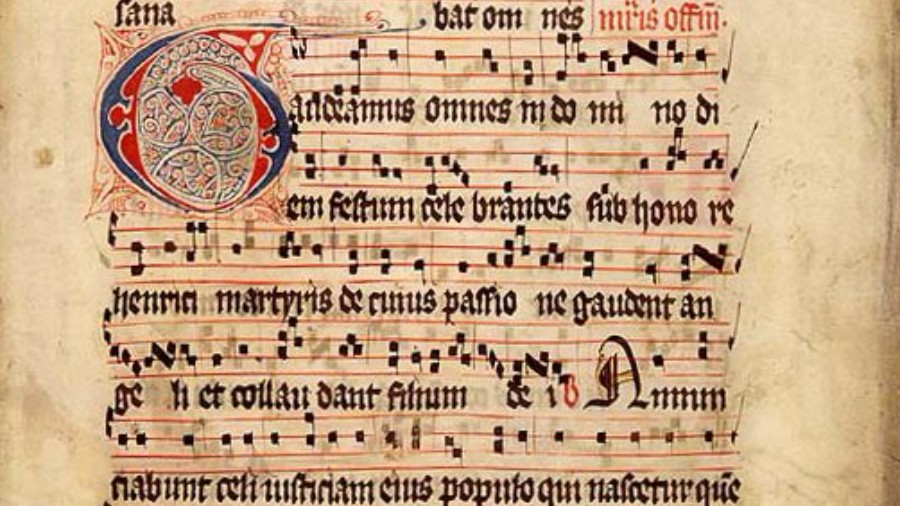 sana bat om nes m̄ris offm̄.
Gaudeamus omnes in do mi no di
em festum cele brantes sub hono re
henrici martyris de cuius passio ne gaudent an
ge li et collau dant filium de i V Annun
ciabunt celi iusticiam eius populo qui nascetur quē